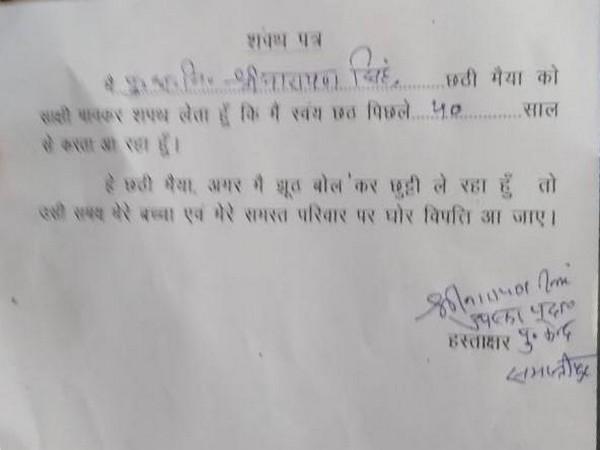 शपथ पत्र
मै पु० अ० नि० श्रीनारायण सिंह, छठी मैया को
साक्षी मानकर शपथ लेता हूँ कि मै स्वंय छठ पिछले 50 साल
से करता आ रहा हूँ।
हे छठी मैया, अगर मै झूठ बोल कर छुट्टी ले रहा हूँ तो
उसी समय मेरे बच्चा एवं मेरे समस्त परिवार पर घोर विपति आ जाए।
श्रीनारायण सिंह
हस्ताक्षर पु० केन्द्र
समस्तीपुर